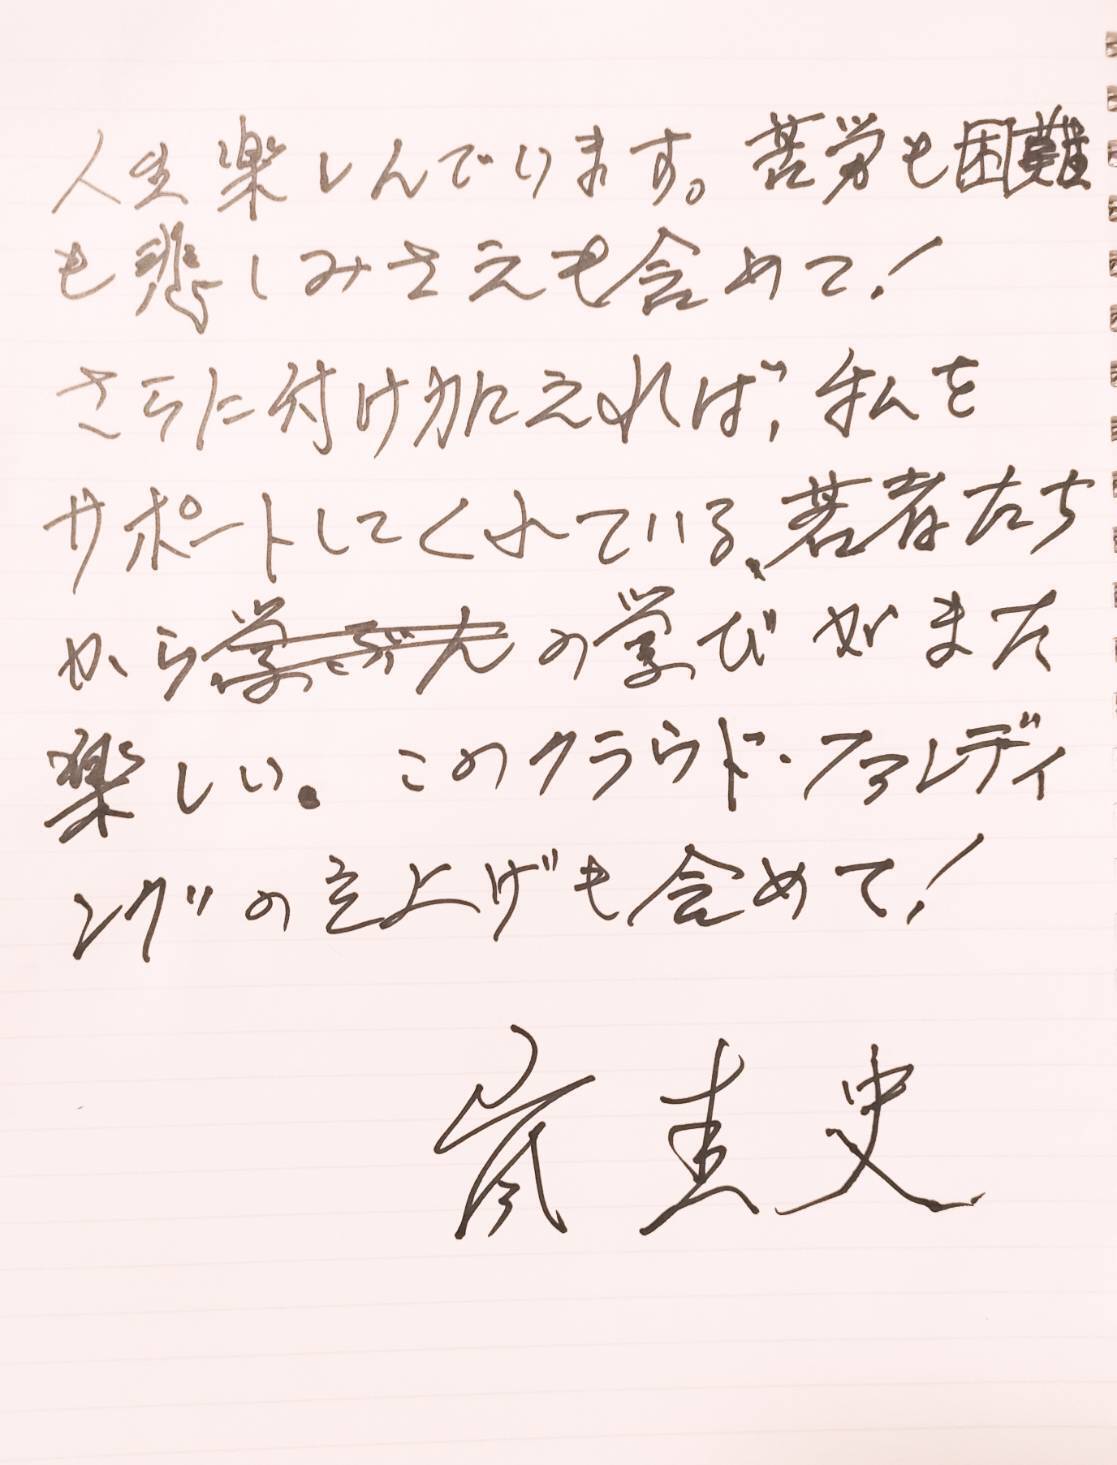 人生楽しんでります。苦労も困難
も悲しみさえも含めて！
さらに付け加えれば、私を
サポートしてくれている、若者たち
から学ぶんの学びがまた
楽しい。このクラウド・ファンディ
ングの立上げも含めて！
嵐圭史